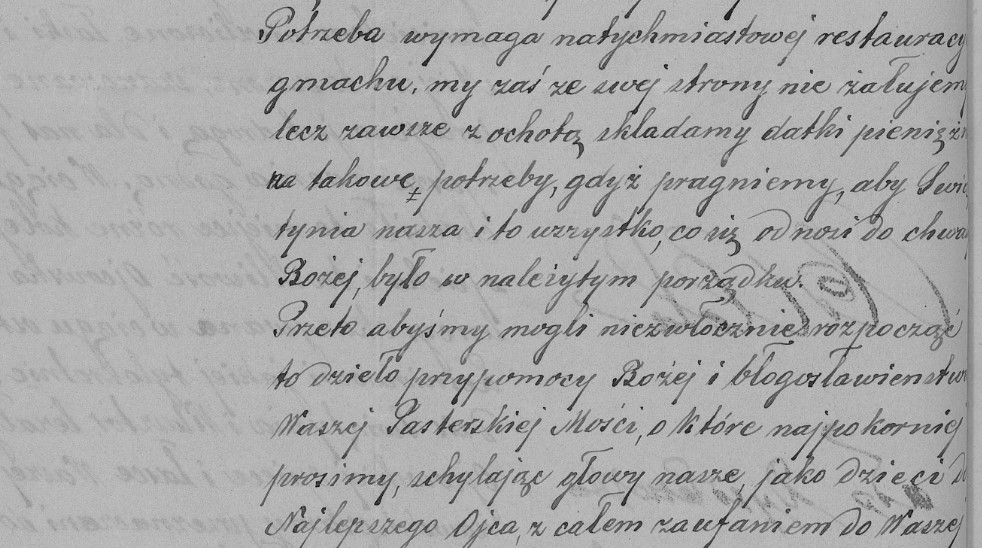 Potrzeba wymaga natychmiastowej restauracy
gmachu, my zaś ze swej strony nie żałujem
lecz zawsze z ochotą składamy datki pieniężn
na takowe potrzeby, gdyż pragniemy, aby Świą
tynia nasza i to wszystko, co się odnosi do chwa
Bożej, było w należytym porządku.
Przeto abyśmy mogli niezwłocznie rozpocząć
to dzieło przy pomocy Bożej i błogosławienstw
Waszej Pasterskiej Mości, o które najpokorniej
prosimy, schylając głowy nasze, jako dzieci d
Najlepszego Ojca, z całem zaufaniem do Waszej